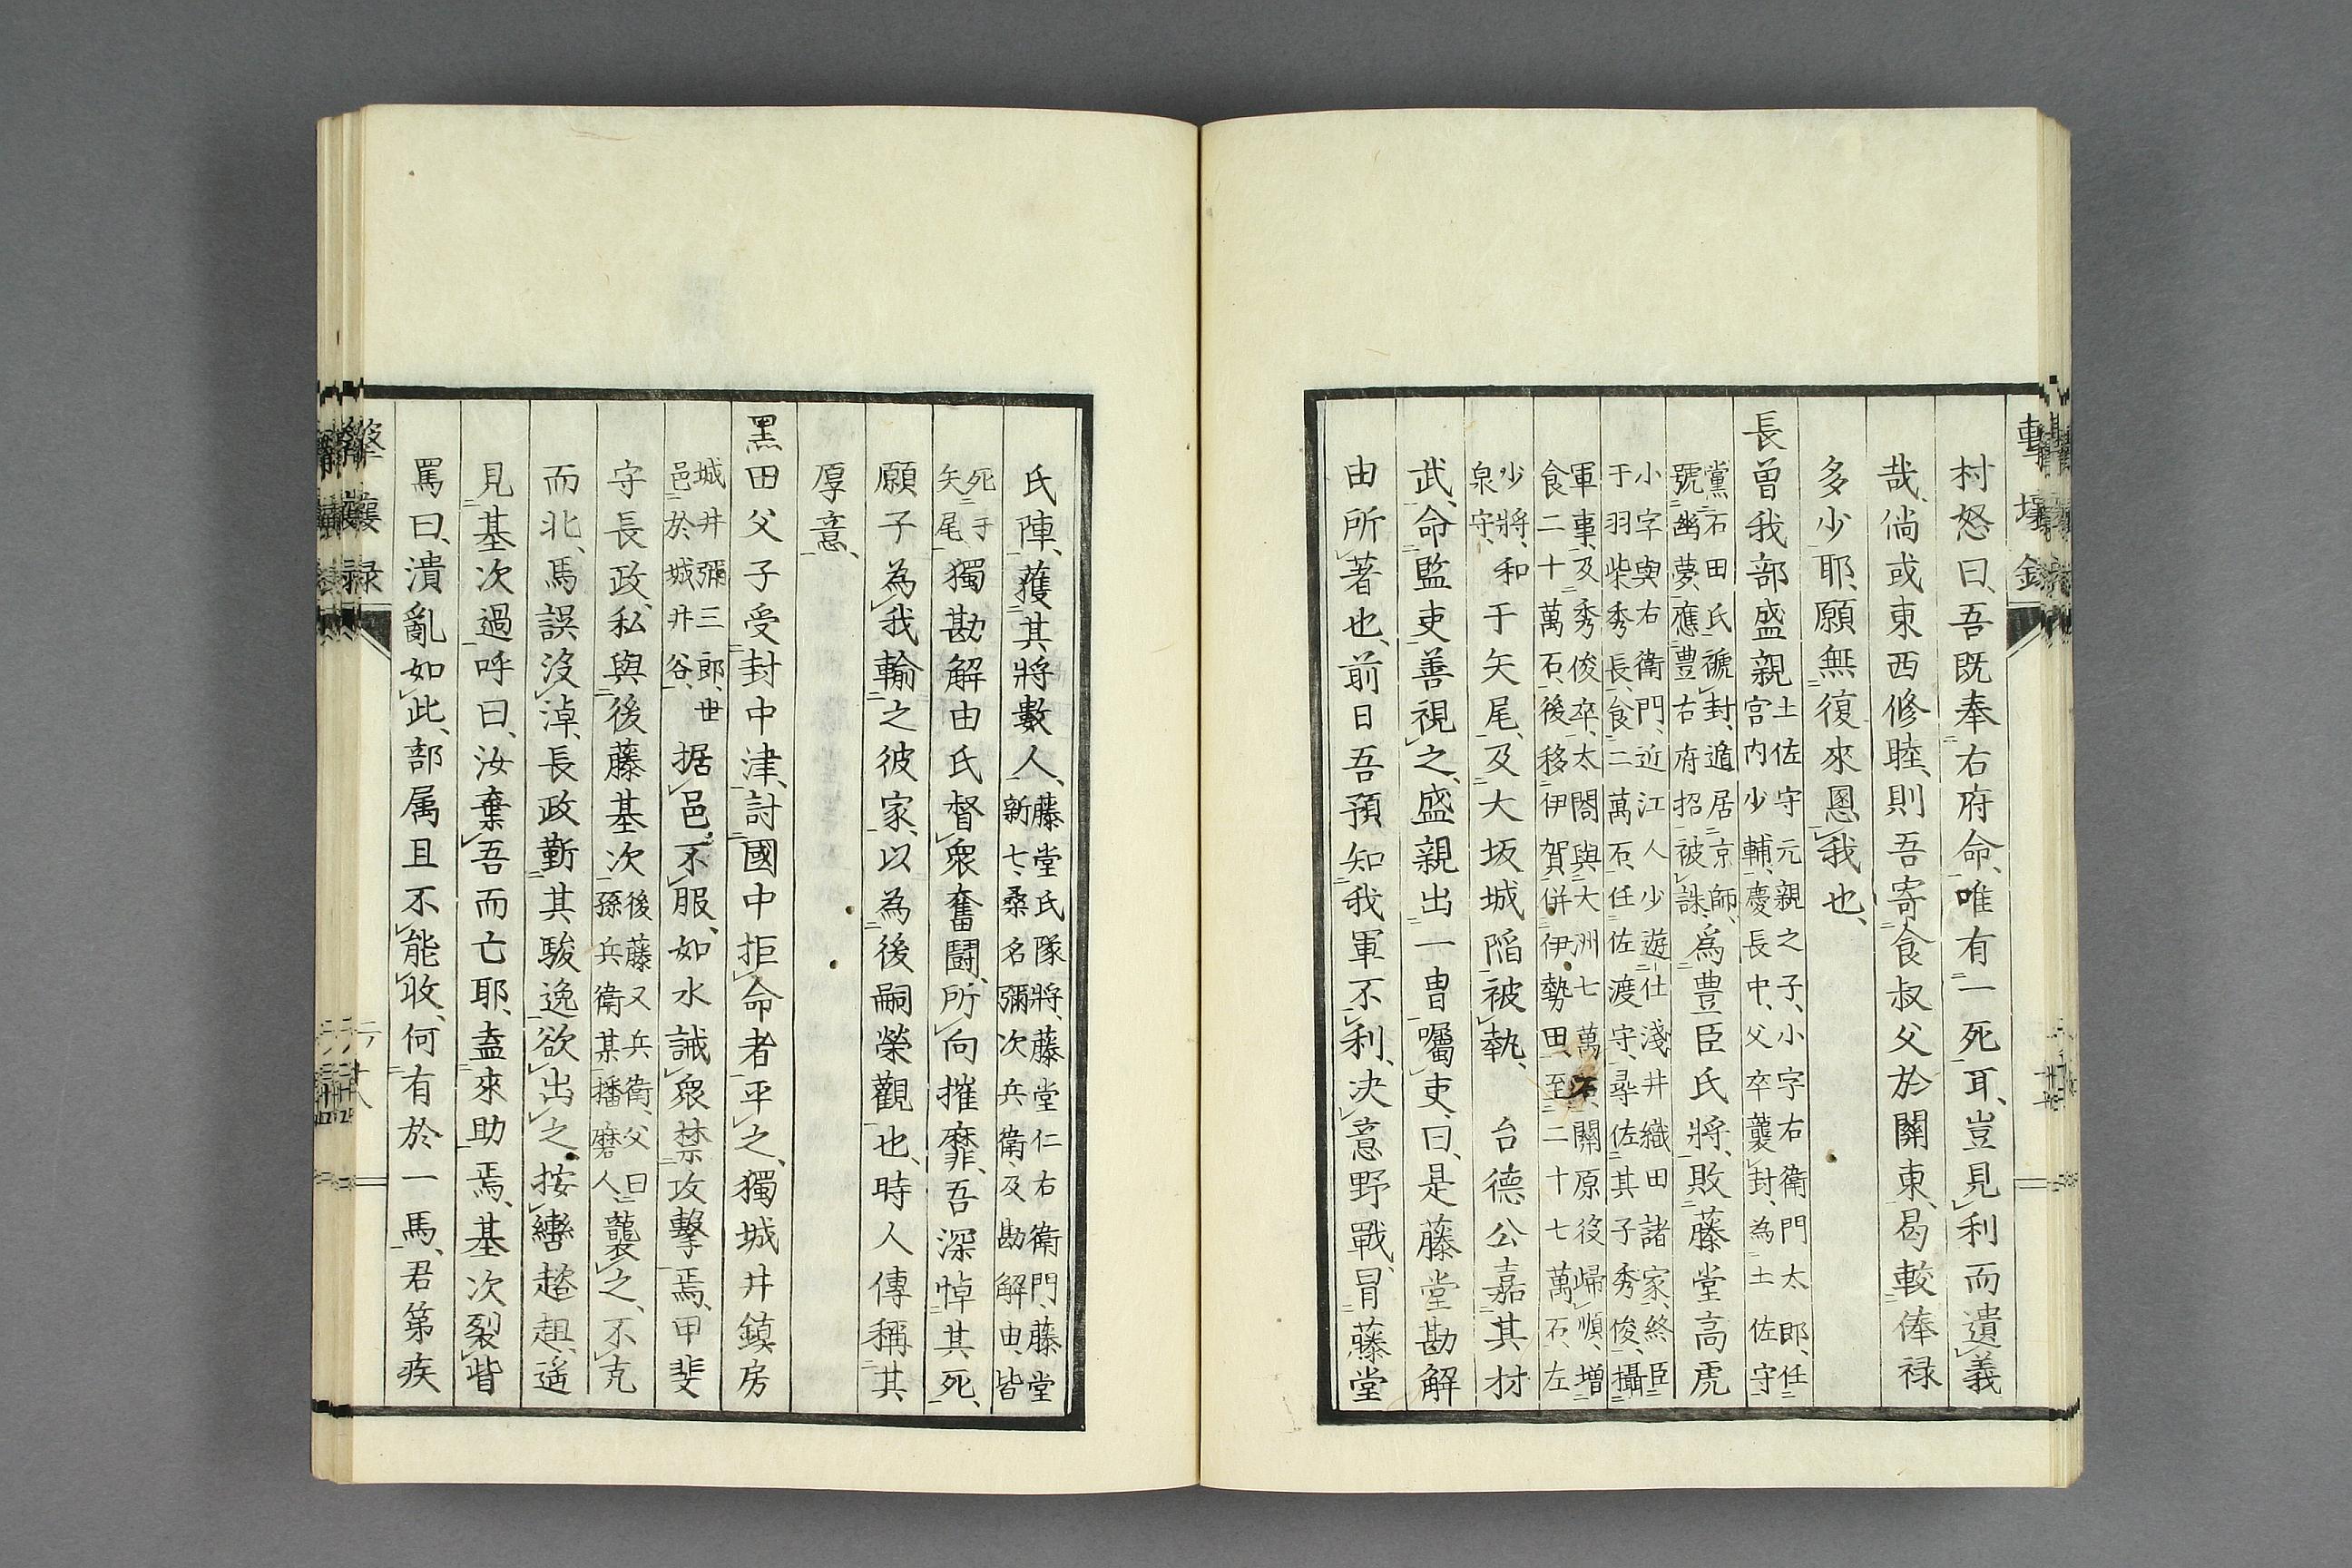 村怒曰、吾既奉右府命、唯有一死耳、豈見利而遺義
哉、倘或東西修睦、則吾寄食叔父於關東、曷較俸禄
多少耶、願無復來恩我也、
長曾我部盛親
土佐守元親之子、小字右衛門太郎、任
宮内少輔、慶長中、父卒襲封、為土佐守
黨石田氏、褫封、遁居京師、
號幽夢、應豊右府招被誅、
為豊臣氏將、敗藤堂高虎
小字與右衛門、近江人少遊仕淺井織田諸家、終臣
于羽柴秀長、食二萬石、任佐渡守、尋佐其子秀俊、攝
軍事、及秀俊卒、太閤與大洲七萬石、關原役歸順、増
食二十萬石、後移伊賀併伊勢田、至二十七萬石、左
少將、和
泉守、
于矢尾、及大坂城陥被執、　台德公嘉其材
武、命監吏善視之、盛親出一冑囑吏、曰、是藤堂勘解
由所著也、前日吾預知我軍不利、决意野戰、冒藤堂
氏陣、獲其將數人、
藤堂氏隊將、藤堂仁右衛門、藤堂
新七、桑名彌次兵衛、及勘解由、皆
死于
矢尾、
獨勘解由氏督衆奮鬪、所向摧靡、吾深悼其死、
願子為我輸之彼家、以為後嗣榮觀也、時人傳稱其
厚意、
黑田父子受封中津、討國中拒命者平之、獨城井鎮房
城井彌三郎、世
邑於城井谷、
据邑、不服、如水誡衆禁攻擊焉、甲斐
守長政、私與後藤基次
後藤又兵衛、父曰
孫兵衛某、播磨人、
襲之、不克
而北、馬誤沒淖、長政斳其駿逸欲出之、按轡趑趄、遙
見基次過呼曰、汝棄吾而亡耶、盍來助焉、基次裂眥
罵曰、潰亂如此、部属且不能收、何有於一馬、君第疾